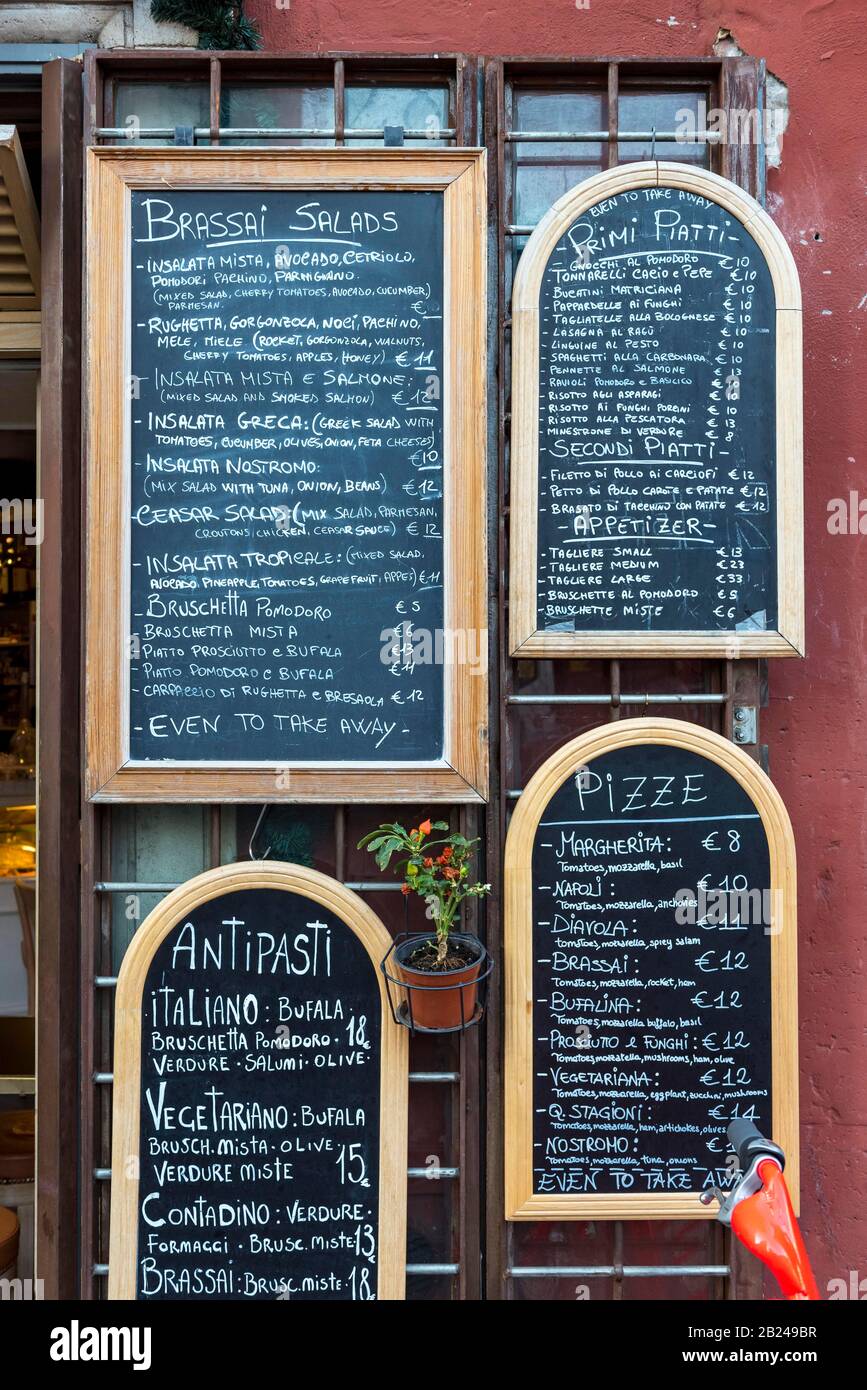 BRASSAI SALADS
- INSALATA MISTA, AVOCADO, CETRIOLO,
POMODORI PACHINO, PARMIGIANO.
(MIXED SALAD, CHERRY TOMATOES, AVOCADO, CUCUMBER,
PARMESAN. €
- RUGHETTA, GORGONZOLA, NOCI, PACHINO,
MELE, MIELE (ROCKET, GORGONZOLA, WALNUTS,
CHERRY TOMATOES, APPLES, HONEY) €11
- INSALATA MISTA E SALMONE:
(MIXED SALAD AND SMOKED SALMON) €12
- INSALATA GRECA: (GREEK SALAD WITH
TOMATOES, CUCUMBER, OLIVES, ONION, FETA CHEESES)
€10
- INSALATA NOSTROMO:
(MIX SALAD WITH TUNA, ONION, BEANS) €12
- CEASAR SALAD: (MIX SALAD, PARMESAN,
CROUTONS, CHICKEN, CEASAR SAUCE) €12
- INSALATA TROPICALE: (MIXED SALAD,
AVOCADO, PINEAPPLE, TOMATOES, GRAPEFRUIT, APPES) €11
- BRUSCHETTA POMODORO €5
BRUSCHETTA MISTA €6
PIATTO PROSCIUTTO E BUFALA €13
PIATTO POMODORO E BUFALA €11
- CARPACCIO DI RUGHETTA E BRESAOLA €12
- EVEN TO TAKE AWAY -
EVEN TO TAKE AWAY
PRIMI PIATTI -
- GNOCCHI AL POMODORO €10
- TONNARELLI CACIO E PEPE €10
BUCATINI MATRICIANA €10
PAPPARDELLE AI FUNGHI €10
TAGLIATELLE ALLA BOLOGNESE €10
LASAGNA AL RAGÙ €10
LINGUINE AL PESTO €10
SPAGHETTI ALLA CARBONARA €10
PENNETTE AL SALMONE €13
RAVIOLI POMODORO E BASILICO €10
RISOTTO AGLI ASPARAGI €10
RISOTTO AI FUNGHI PORCINI €10
RISOTTO ALLA PESCATORA €13
MINESTRONE DI VERDURE €8
- SECONDI PIATTI -
FILETTO DI POLLO AI CARCIOFI €12
PETTO DI POLLO CAROTE E PATATE €12
BRASATO DI TACCHINO CON PATATE €12
- APPETIZER -
- TAGLIERE SMALL €13
TAGLIERE MEDIUM €23
TAGLIERE LARGE €33
BRUSCHETTE AL POMODORO €5
BRUSCHETTE MISTE €6
PIZZE
- MARGHERITA: €8
Tomatoes, mozzarella, basil
- NAPOLI: €10
Tomatoes, mozzarella, anchovies
- DIAVOLA: €11
tomatoes, mozzarella, spicy salam
- BRASSAI: €12
Tomatoes, mozzarella, rocket, ham
- BUFALINA: €12
Tomatoes, mozzarella buffalo, basil
- PROSCIUTO E FUNGHI: €12
Tomatoes, mozzatella, mushrooms, ham, olive
- VEGETARIANA: €12
Tomatoes, mozzarella, egg plant, zucchini, mushrooms
- Q. STAGIONI: €14
Tomatoes, mozzarella, ham, artichokes, olives
- NOSTROMO:
Tomatoes, mozzarella, tuna, onions
EVEN TO TAKE AWAY
ANTIPASTI
ITALIANO: BUFALA
BRUSCHETTA POMODORO. 18€
VERDURE. SALUMI. OLIVE.
VEGETARIANO: BUFALA
BRUSCH. MISTA. OLIVE.
VERDURE MISTE 15€
CONTADINO: VERDURE
FORMAGGI. BRUSC. MISTE. 13€
BRASSAI: BRUSC. MISTE. 18€
alamy
Image ID: 2B249BR
www.alamy.com